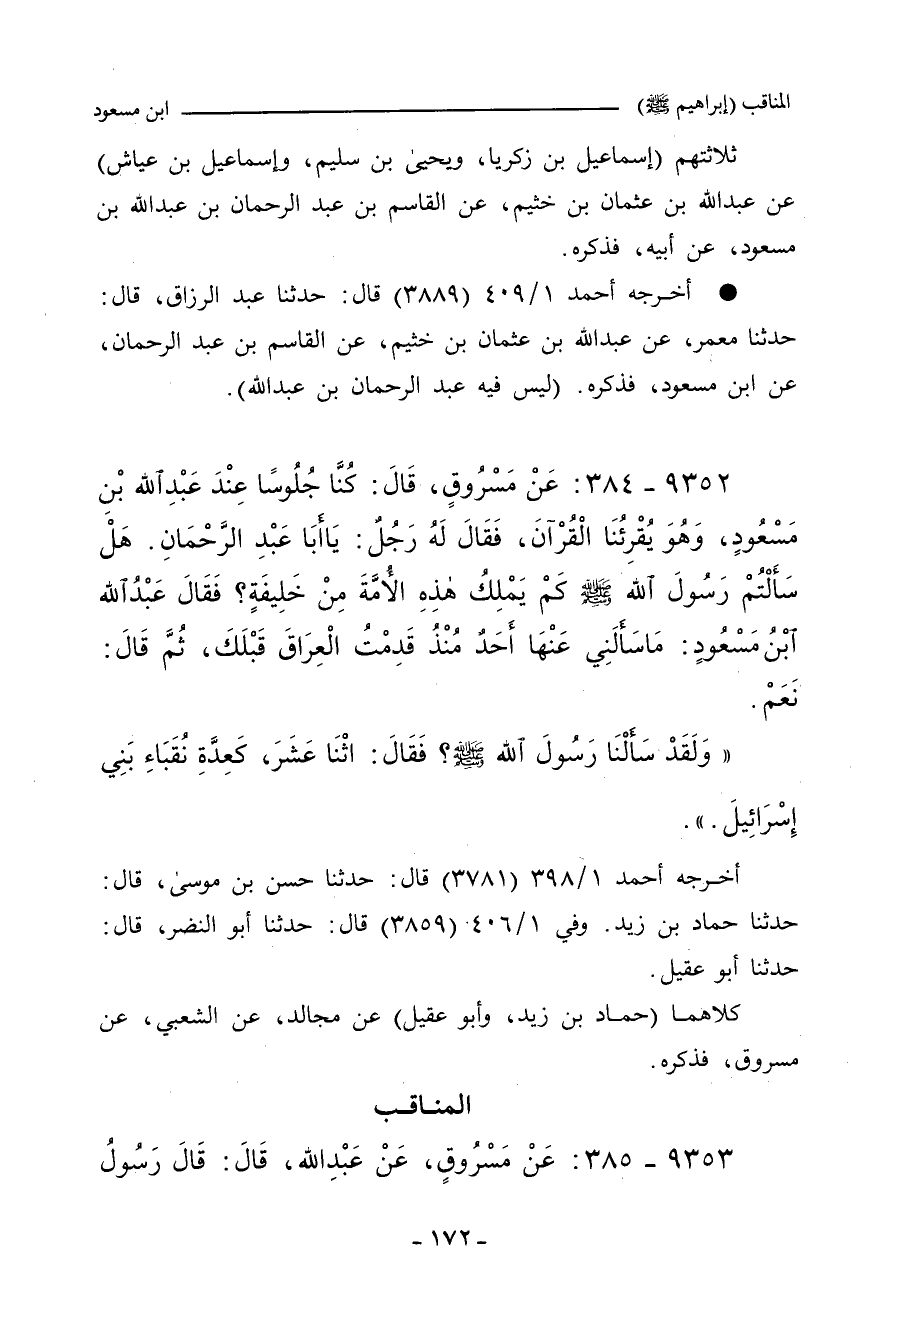 المناقب (إبراهيم ﷺ) ابن مسعود
ثلاثتهم (إسماعيل بن زكريا، ويحيىٰ بن سليم، وإسماعيل بن عياش)
عن عبدالله بن عثمان بن خثيم، عن القاسم بن عبد الرحمان بن عبدالله بن
مسعود، عن أبيه، فذكره.
● أخـرجه أحمد ٤٠٩/١ (٣٨٨٩) قال: حدثنا عبد الرزاق، قال:
حدثنا معمر، عن عبدالله بن عثمان بن خثيم، عن القاسم بن عبد الرحمان،
عن ابن مسعود، فذكره. (ليس فيه عبد الرحمان بن عبدالله).
٩٣٥٢ ـ ٣٨٤: عَنْ مَسْرُوقٍ، قَالَ: كُنَّا جُلُوسًا عِنْدَ عَبْدِٱلله بْنِ
مَسْعُودٍ، وَهُوَ يُقْرِئُنَا الْقُرْآنَ، فَقَالَ لَهُ رَجُلٌ: يَاأَبَا عَبْدِ الرَّحْمَانِ. هَلْ
سَأَلْتُمْ رَسُولَ ٱلله ﷺ كَمْ يَمْلِكُ هٰذِهِ الأُمَّةَ مِنْ خَلِيفَةٍ؟ فَقَالَ عَبْدُٱلله
ٱبْنُ مَسْعُودٍ: مَاسَأَلَنِي عَنْهَا أَحَدٌ مُنْذُ قَدِمْتُ الْعِرَاقَ قَبْلَكَ، ثُمَّ قَالَ:
نَعَمْ.
« وَلَقَدْ سَأَلْنَا رَسُولَ ٱلله ﷺ؟ فَقَالَ: اثْنَا عَشَرَ، كَعِدَّةِ نُقَبَاءِ بَنِي
إِسْرَائِيلَ.».
أخـرجه أحمد ٣٩٨/١ (٣٧٨١) قال: حدثنا حسن بن موسىٰ، قال:
حدثنا حماد بن زيد. وفي ٤٠٦/١ (٣٨٥٩) قال: حدثنا أبو النضر، قال:
حدثنا أبو عقيل.
كلاهمـا (حمـاد بن زيد، وأبو عقيل) عن مجالد، عن الشعبي، عن
مسروق، فذكره.
المنـاقـب
٩٣٥٣ ـ ٣٨٥: عَنْ مَسْرُوقٍ، عَنْ عَبْدِالله، قَالَ: قَالَ رَسُولُ
ـ ١٧٢ ـ